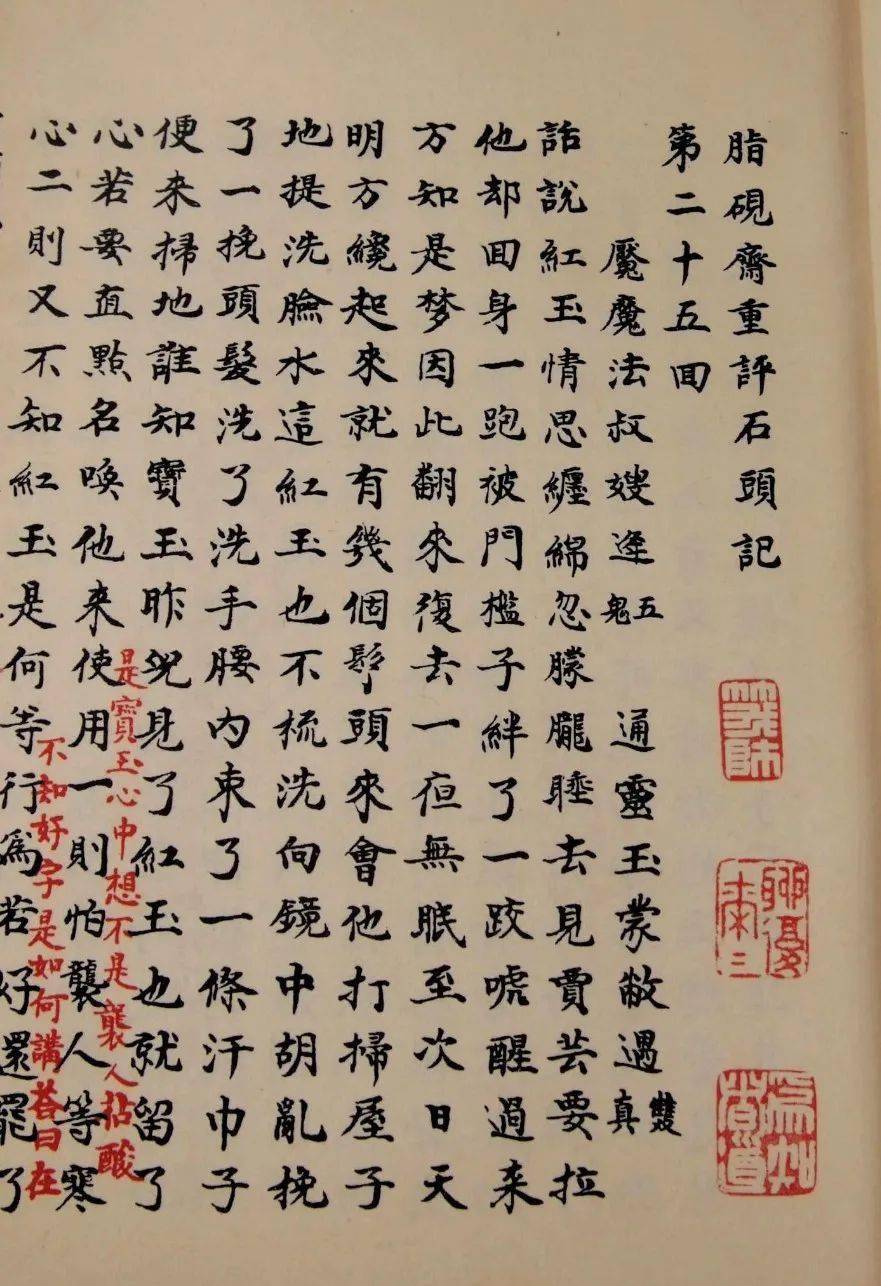 脂硯齋重評石頭記
第二十五囬
魘魔法叔嫂逢五鬼 通靈玉蒙敝遇雙真
話說紅玉情思纏綿忽朦朧睡去見賈芸要拉
他却囬身一跑被門檻子絆了一跤唬醒過来
方知是梦因此翻來復去一夜無眠至次日天
明方纔起來就有幾個丫頭來會他打掃屋子
地提洗臉水這紅玉也不梳洗向鏡中胡亂挽
了一挽頭髮洗了洗手腰内束了一條汗巾子
便来掃地誰知寶玉昨児見了紅玉也就留了
心若要直點名喚他来使用一則怕襲人等寒
是寶玉心中想不是襲人拈酸
心二則又不知紅玉是何等行為若好還罷了
不知好字是如何講荅曰在